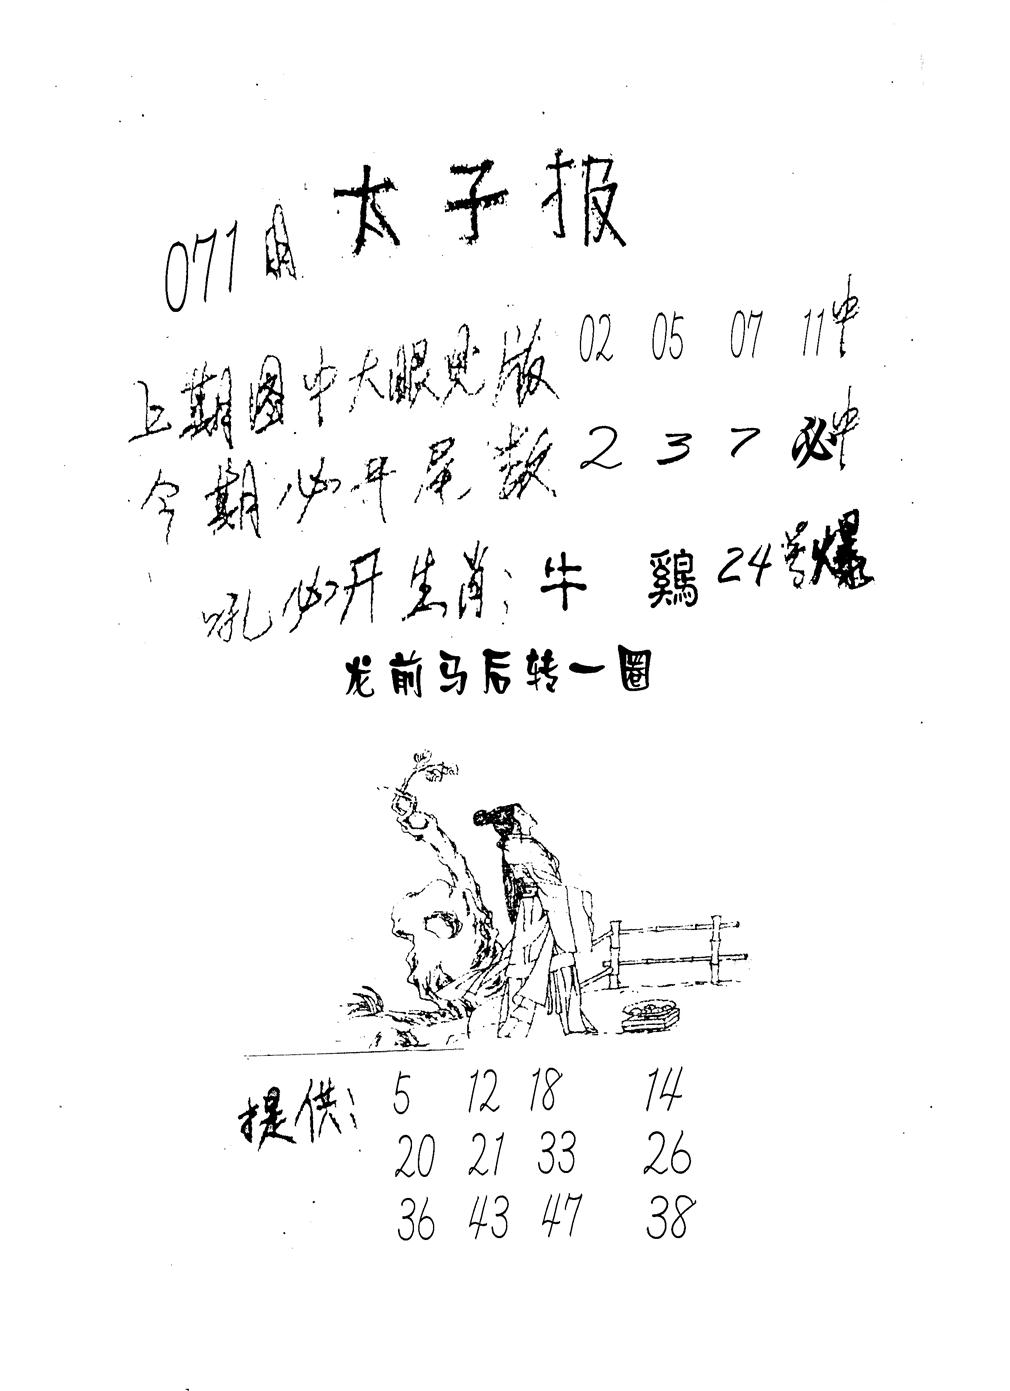 太子报
071期
上期图中大眼见版 02 05 07 11中
今期必开尾数 2 3 7 必中
吼必开生肖: 牛 鷄 24号爆
龙前马后转一圈
提供: 5 12 18 14
20 21 33 26
36 43 47 38